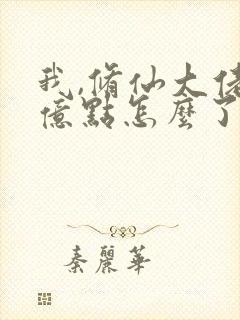 我,脩仙大佬
億點怎麼了
秦麗華